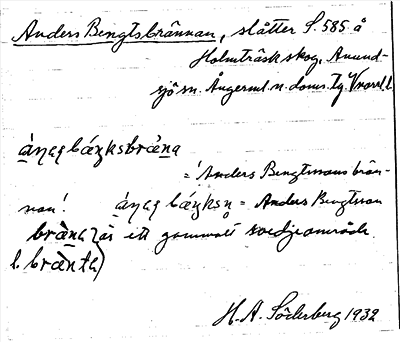 Anders Bengtsbrännan, slåtter S. 585 å
Holmträsk skog, Anund-
sjö sn. Ångerml. n. doms. Tg.
ánąs báŋksbrà̀na
= 'Anders Bengtssons brän-
nan'. ánąs báŋksn̥ = Anders Bengtsson
bràna är ett gammalt svedjeområde.
l. brànta)
H. A. Söderberg 1932